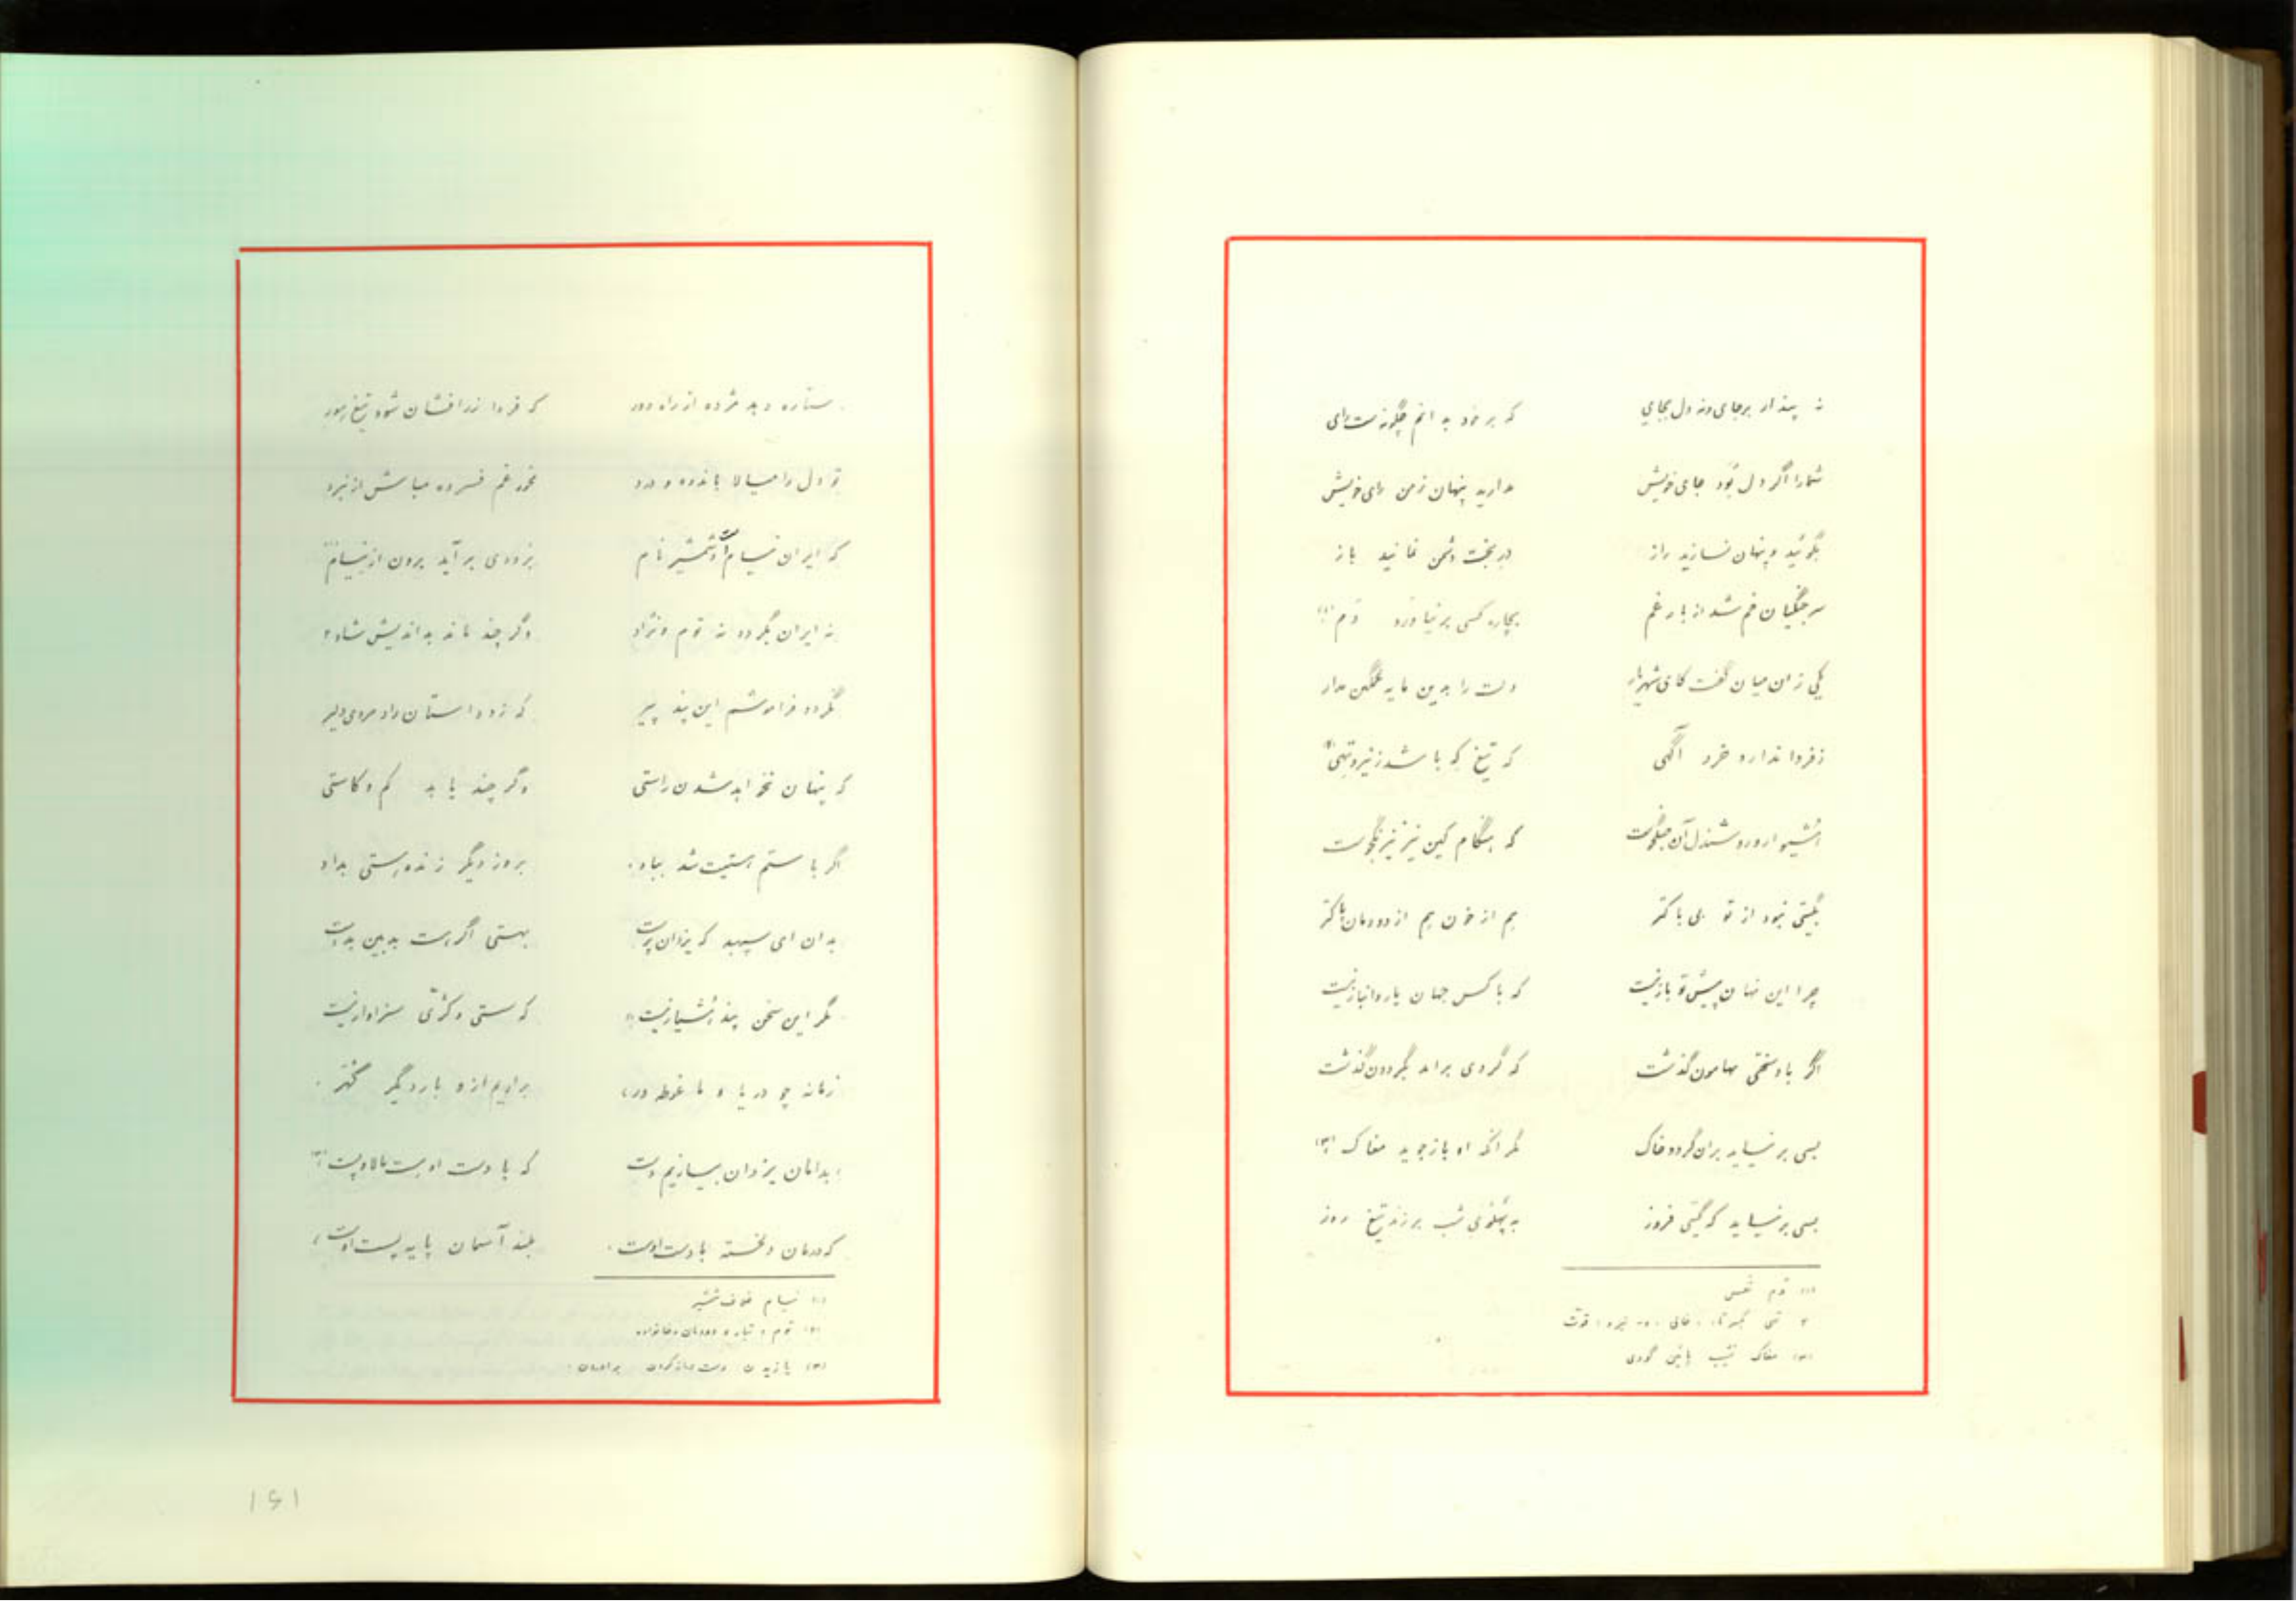 نه پندار برجای و نه دل بجای که بر خود بدانم چگونه‌ست رای
شما را اگر دل بُوَد جای خویش مدارید پنهان ز من رای خویش
بگوئید و پنهان نسازید راز در بخت دشمن نمانید باز
سر جنگیان خم شد از بار غم بچاره کسی بر نیاورد دَم (۱)
یکی زان میان گفت کای شهریار دلت را بدین مایه غمگین مدار
ز فردا ندارد خرد آگهی که تیغ که باشد ز نیرو تهی (۲)
هُشیوار و روشندل آن جنگجوست که هنگام کین نیز نیز نکوست
بگیتی نبود از تو بی باکتر هم از خون هم از دودمان پاکتر
چرا این نهان پیش تو باز نیست که با کس جهان یار و انباز نیست
اگر باد سختی بهامون گذشت که گردی برآمد بگردون گذشت
بسی بر نیاید بران گرد و خاک مگر آنکه او باز جوید مغاک (۳)
بسی بر نیاید که گیتی فروز به پهلوی شب بر زند تیغ روز
(۱) دَم نفس
۲ تهی خالی نیرو قوت
(۳) مغاک نشیب پائین گودی
ستاره دهد مژده از راه دور که فردا زرافشان شود تیغ هور
تو دل را میالا باندوه و درد مخور غم فسرده مباش از نبرد
که ایران نیام است و شمشیر نام بزودی برآید برون از نیام (۱)
نه ایران بگردد نه توم و نژاد وگر چند ماند بداندیش شاد
نگردد فراموشم این پند پیر که زد داستان راد مردی دلیر
که پنهان نخواهد شدن راستی وگر چند یابد کم و کاستی
اگر با ستم هستیت شد بباد بروز دیگر زنده هستی بداد
بدان ای سپهبد که یزدان پرست بهستی اگر هست بدبین بدست
مگر این سخن پند هُشیار نیست که سستی و کژّی سزاوار نیست
زمانه چو دریا و ما غوطه ور برآریم ازو بار دیگر گهر
بدامان یزدان بیازیم دست که با دست او هست بالا و پست (۳)
که درمان دلخسته با دست اوست بلند آسمان پایه پست اوست
(۱) نیام غلاف شمشیر
(۲) توم و تبار و دودمان و خانواده
(۳) یازیدن دست دراز کردن
۱۵۱